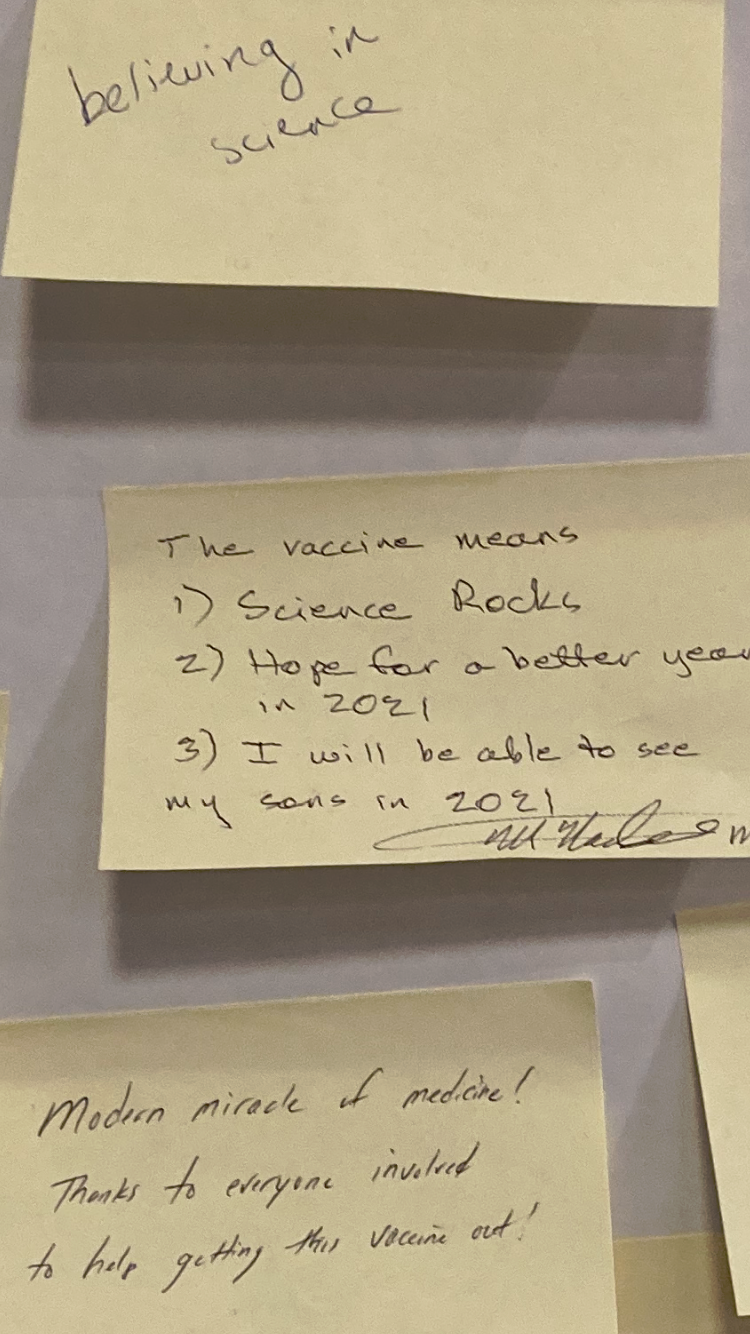 believing in
science
The vaccine means
1) Science Rocks
2) Hope for a better year
in 2021
3) I will be able to see
my sons in 2021
Modern miracle of medicine!
Thanks to everyone involved
to help getting this vaccine out!